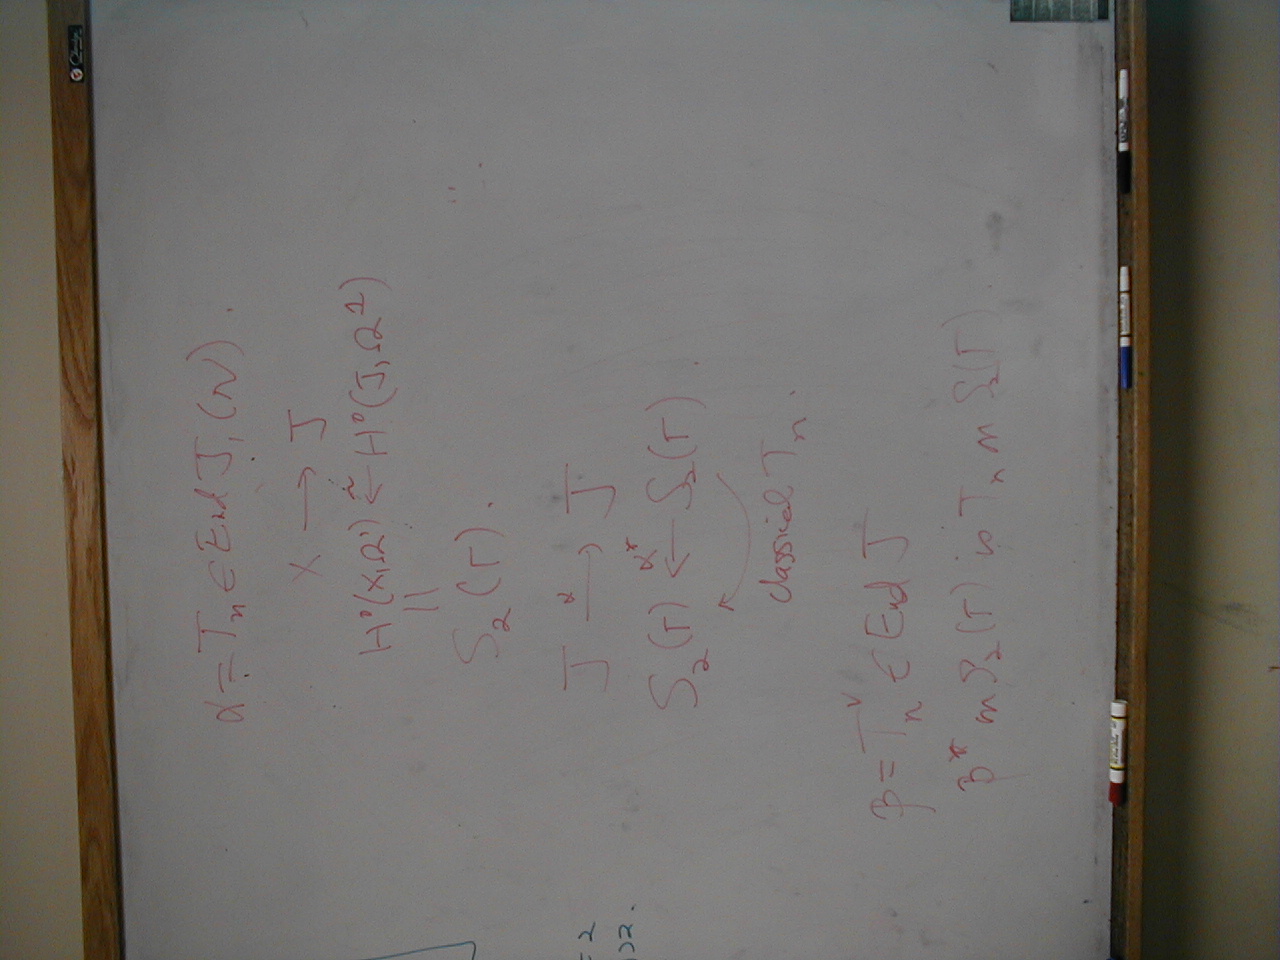 α = Tₙ ∈ End J₁(N).
X → J
H⁰(X,Ω¹) ←~ H⁰(J,Ω¹)
||
S₂(Γ).
J →α J
S₂(Γ) ←α* S₂(Γ)
classical Tₙ.
β = Tₙ^∨ ∈ End J
β* on S₂(Γ) is Tₙ on S₂(Γ)